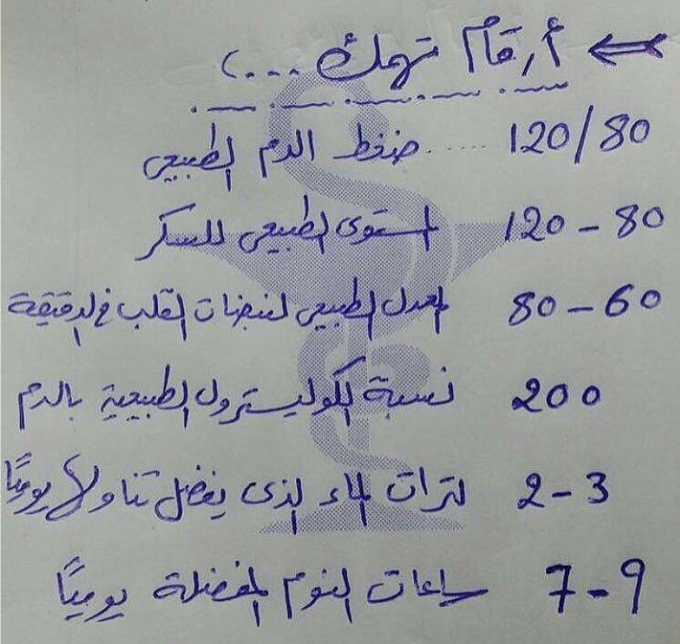 أرقام تهمك ...
120/80 ..... ضغط الدم الطبيعي
120 - 80 المستوى الطبيعي للسكر
80 - 60 المعدل الطبيعي لنبضات القلب في الدقيقة
200 نسبة الكوليسترول الطبيعية بالدم
2 - 3 لترات الماء الذى يفضل تناولها يوميًا
7 - 9 ساعات النوم المفضلة يوميًا